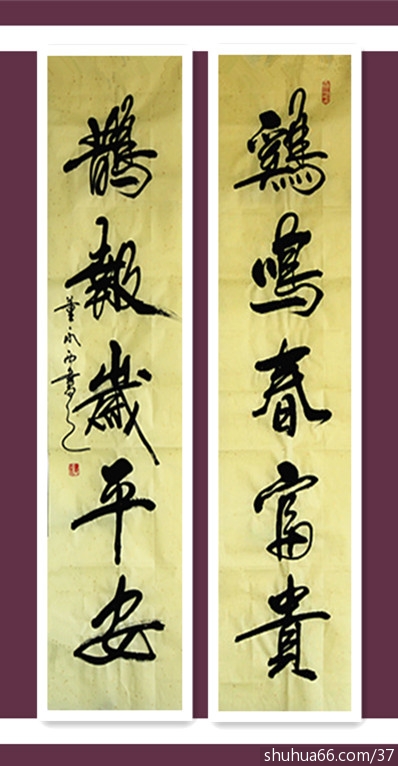 鷄鳴春富貴
鵲報歲平安
shuhua66.com/37